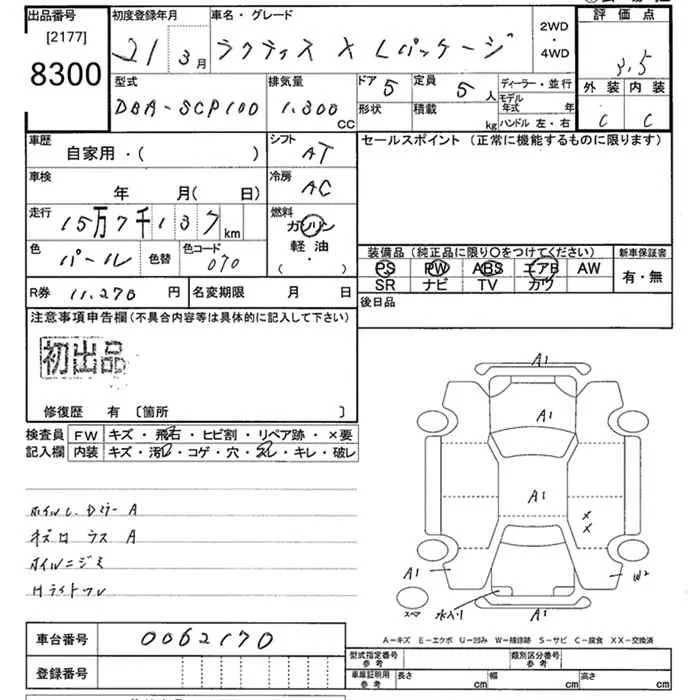 出品番号 初度登録年月 車名・グレード 2WD・4WD 評価点
[2177] 8300 21 3月 ラクティス X Lパッケージ 3.5
型式 排気量 ドア 5 定員 5人 ディーラー・並行 外装 内装
DBA-SCP100 1,300CC 形状 積載 kg モデル年式 年 ハンドル 左・右 C C
車歴 シフト セールスポイント (正常に機能するものに限ります)
自家用・( ) AT
車検 冷房
年 月( 日) AC
走行 15万7千137km 燃料 ガソリン 軽油 ( ・ )
色 パール 色替 色コード 070
装備品 (純正品に限り〇をつけてください) 新車保証書
PS PW ABS エアB AW 有・無
SR ナビ TV カワ
R券 11,270 円 名変期限 月 日 後日品
注意事項申告欄(不具合内容等は具体的に記入して下さい)
初出品
修復歴 有 〔箇所 〕
検査員 FW キズ・飛石・ヒビ割・リペア跡・×要
記入欄 内装 キズ・汚れ・コゲ・穴・スレ・キレ・破レ
A1
A1
A1
××
A1 W2
スペア 水入り A1
A
A
A-キズ E-エクボ U-凹み W-補修跡 S-サビ C-腐食 XX-交換済
車台番号 0062170
型式指定番号 参考 類別区分番号 参考
登録番号
車庫証明用 参考 長さ cm 幅 cm 高さ cm